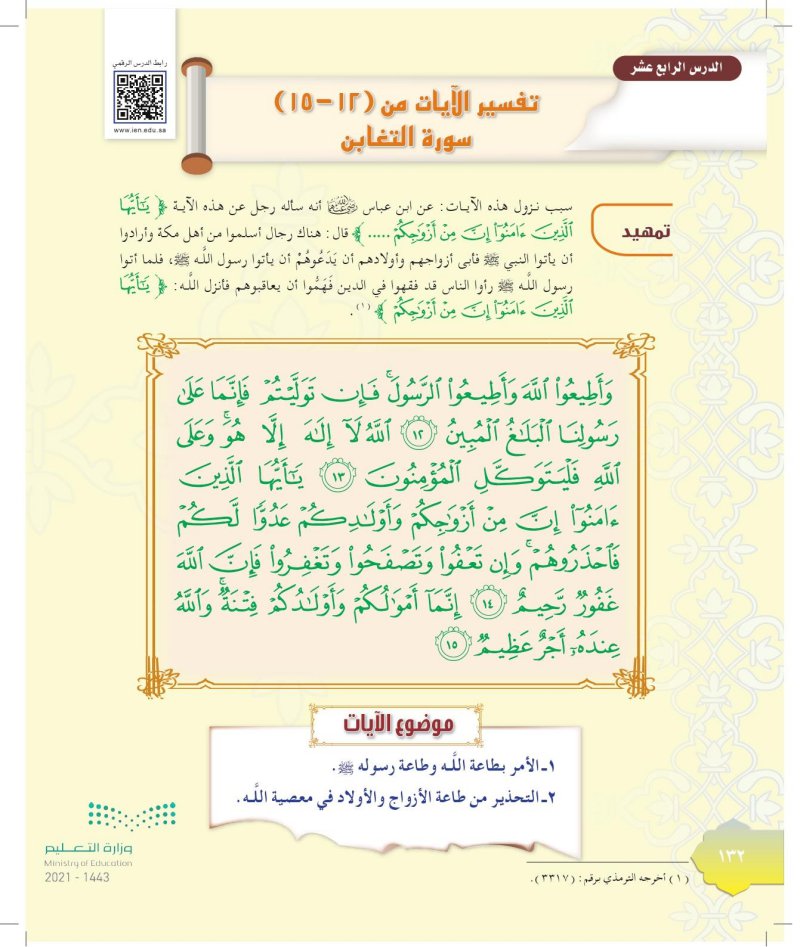 الدرس الرابع عشر
رابط الدرس الرقمي
www.ien.edu.sa
تفسير الآيات من (١٢-١٥)
سورة التغابن
تمهيد
سبب نـزول هذه الآيـات: عن ابن عباس رضي الله عنهما أنه سأله رجل عن هذه الآيـة ﴿ يَـٰٓأَيُّهَا
ٱلَّذِينَ ءَامَنُوٓاْ إِنَّ مِنْ أَزْوَٰجِكُمْ ..... ﴾ قال: هناك رجال أسلموا من أهل مكة وأرادوا
أن يأتوا النبي ﷺ فأبى أزواجهم وأولادهم أن يَدَعُوهُمْ أن يأتوا رسول اللَّه ﷺ، فلما أتوا
رسول اللَّه ﷺ رأوا الناس قد فقهوا في الدين فَهَمُّوا أن يعاقبوهم فأنزل اللَّه: ﴿ يَـٰٓأَيُّهَا
ٱلَّذِينَ ءَامَنُوٓاْ إِنَّ مِنْ أَزْوَٰجِكُمْ ﴾ (١).
وَأَطِيعُواْ ٱللَّهَ وَأَطِيعُواْ ٱلرَّسُولَۚ فَإِن تَوَلَّيْتُمْ فَإِنَّمَا عَلَىٰ
رَسُولِنَا ٱلْبَلَـٰغُ ٱلْمُبِينُ ١٢ ٱللَّهُ لَآ إِلَـٰهَ إِلَّا هُوَۚ وَعَلَى
ٱللَّهِ فَلْيَتَوَكَّلِ ٱلْمُؤْمِنُونَ ١٣ يَـٰٓأَيُّهَا ٱلَّذِينَ
ءَامَنُوٓاْ إِنَّ مِنْ أَزْوَٰجِكُمْ وَأَوْلَـٰدِكُمْ عَدُوًّا لَّكُمْ
فَٱحْذَرُوهُمْۚ وَإِن تَعْفُواْ وَتَصْفَحُواْ وَتَغْفِرُواْ فَإِنَّ ٱللَّهَ
غَفُورٌ رَّحِيمٌ ١٤ إِنَّمَآ أَمْوَٰلُكُمْ وَأَوْلَـٰدُكُمْ فِتْنَةٌۚ وَٱللَّهُ
عِندَهُۥٓ أَجْرٌ عَظِيمٌ ١٥
موضوع الآيات
١ـ الأمر بطاعة اللَّـه وطاعة رسوله ﷺ.
٢ـ التحذير من طاعة الأزواج والأولاد في معصية اللَّـه.
وزارة التعـليم
Ministry of Education
2021 - 1443
١٣٢
(١) أخرجه الترمذي برقم: (٣٣١٧).